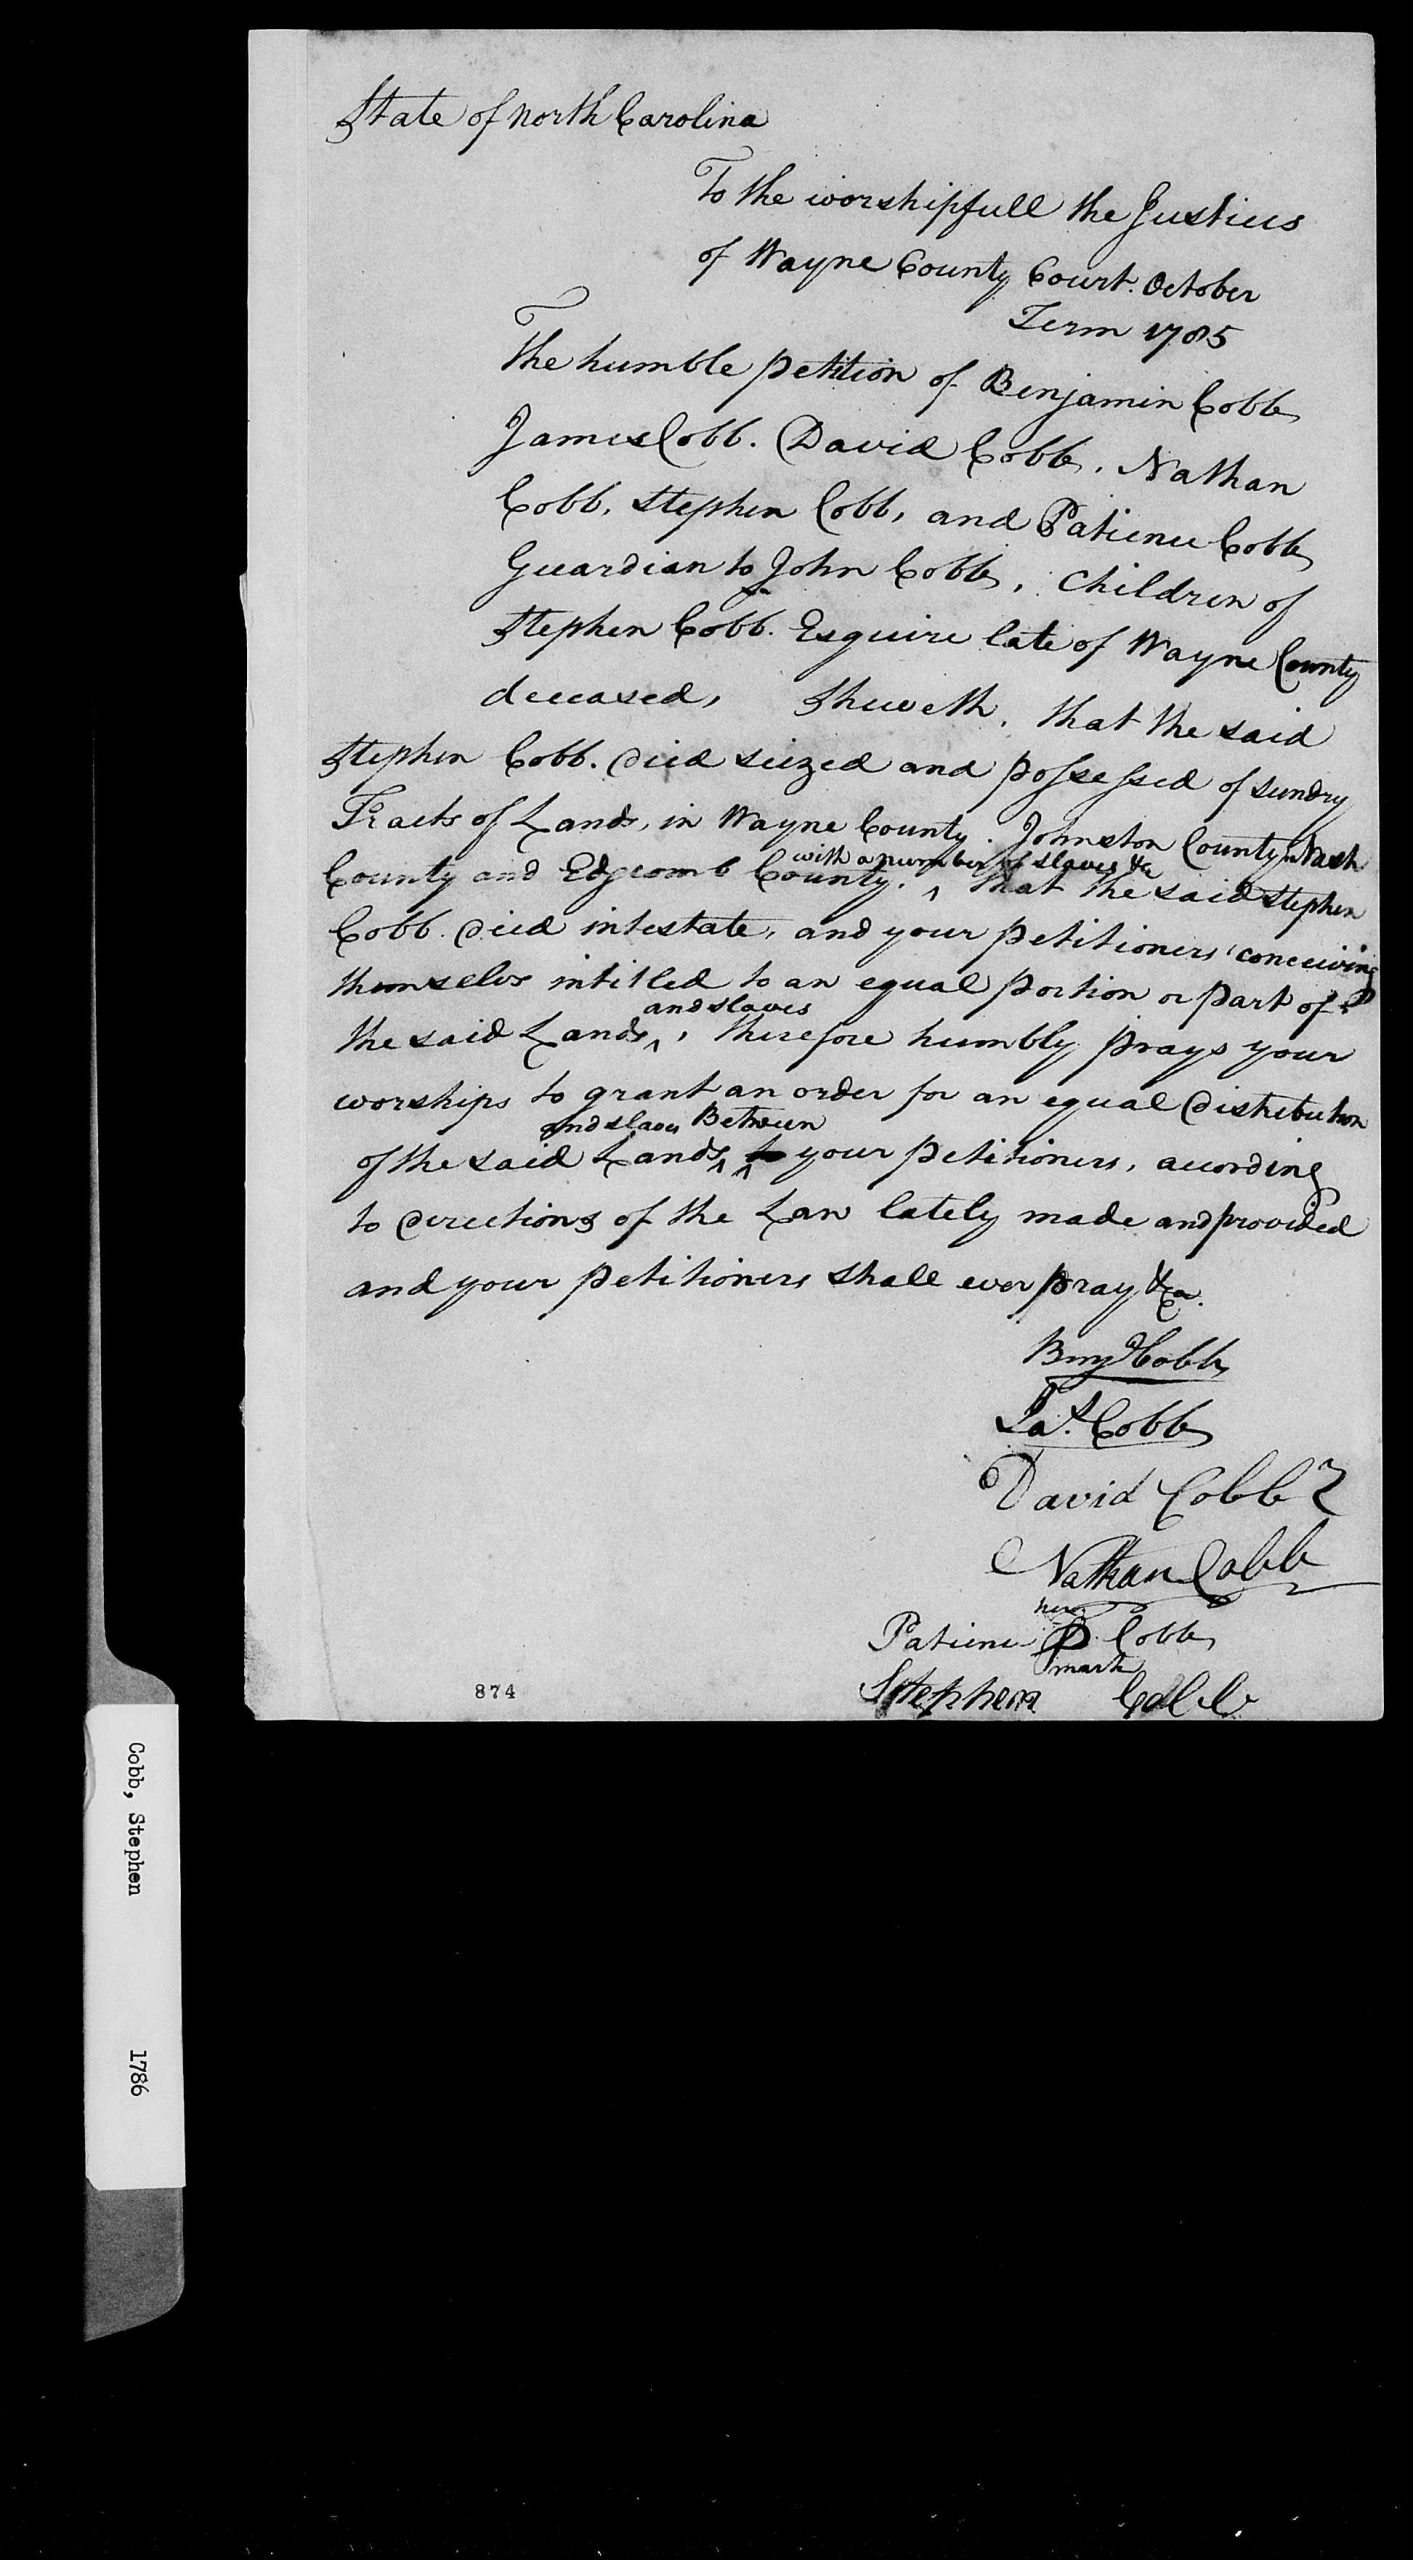 State of North Carolina
To the worshipfull the Justices
of Wayne County Court. October
Term 1785
The humble petition of Benjamin Cobb
James Cobb. David Cobb, Nathan
Cobb, Stephen Cobb, and Patience Cobb
Guardian to John Cobb, Children of
Stephen Cobb. Esquire late of Wayne County
deceased, Sheweth, that the said
Stephen Cobb. died seized and possessed of sundry
Tracts of Lands, in Wayne County. Johnston County, Nash
with a number of slaves &c
County and Edgcomb County. ^ that the said Stephen
Cobb. died intestate, and your petitioners conceiving
themselves intitled to an equal portion or part of
and slaves
the said Lands ^, therefore humbly prays your
worships to grant an order for an equal distribution
and slaves Between
of the said Lands ^ ^ to your petitioners, acording
to directions of the Law lately made and provided
and your petitioners shall ever pray &ca.
Benj Cobb
Jas. Cobb
David Cobb
Nathan Cobb
her
Patience P Cobb
mark
Stephen Cobb
874
Cobb, Stephen 1786